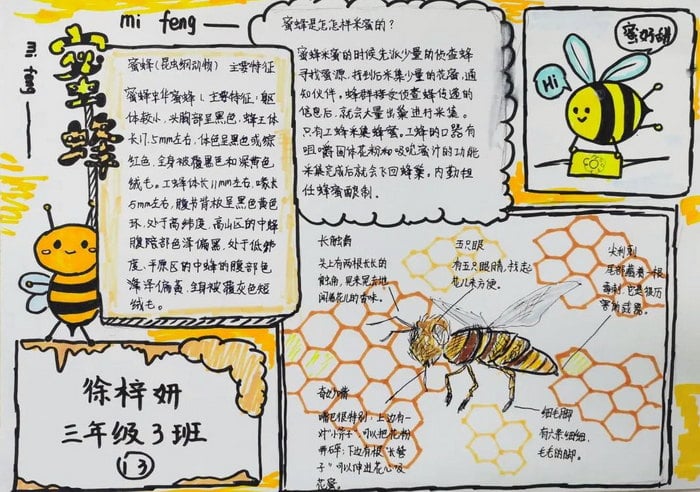 mi feng
mi feng
蜜蜂
蜜蜂(昆虫纲动物) 主要特征
蜜蜂中华蜜蜂1.主要特征:躯
体较小,头胸部呈黑色,蜂王体
长17.5mm左右,体色呈黑色或棕
红色,全身被覆黑色和深黄色
绒毛。工蜂体长11mm左右,喙长
5mm左右,腹节背板呈黑色黄色
环,处于高纬度、高山区的中蜂
腹部色泽偏黑,处于低纬
度、平原区的中蜂的腹部色
泽偏黄,全身被覆灰色短
绒毛。
蜜蜂是怎样采蜜的?
蜜蜂采蜜的时候先派少量的侦查蜂
寻找蜜源,找到后采集少量的花蜜,通
知伙伴。蜂群接受侦查蜂传递的
信息后,就会大量出巢进行采集。
只有工蜂采集蜂蜜。工蜂的口器有
咀嚼固体花粉和吸吮蜜汁的功能
采集完成后就会飞回蜂巢,内勤担
任蜂蜜酿制。
蜜好甜
Hi
长触角
头上有两根长长的
触角,晃来晃去地
闻着花儿的香味。
五只眼
有五只眼睛,找起
花儿来方便。
尖利刺
尾部藏着一根
毒刺,它是很厉
害的武器。
奇妙嘴
嘴巴很特别:上边有一
对"小筷子"可以把花粉
弄碎;下边有根"长管
子"可以伸进花心吸
花蜜。
细毛脚
有六条细细、
毛毛的脚。
徐梓妍
三年级3班
13